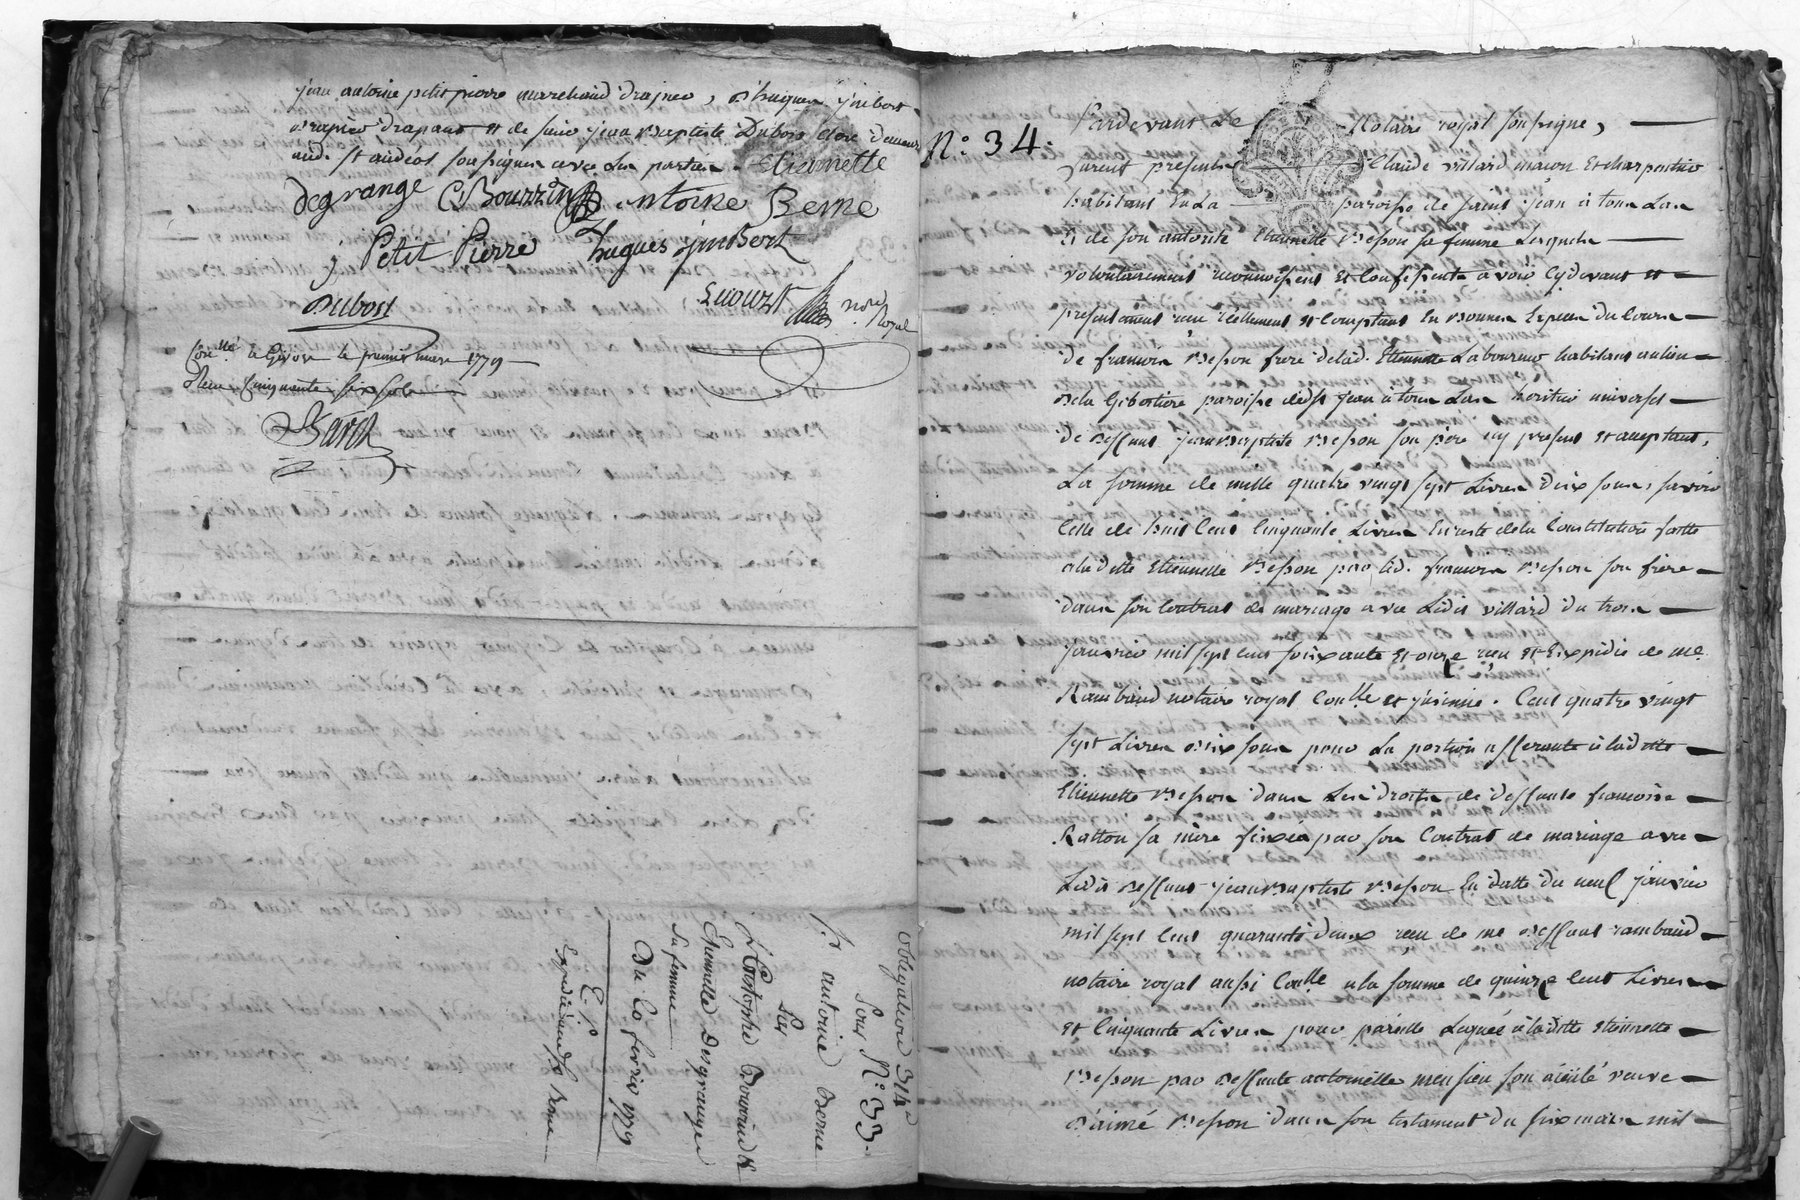 jean antoine petit pierre marchand drapier, & hugues jmbert
drapier drapant et de sieur jean Baptiste Dubost clerc demeurant
aud. st andeol soussignés avec les parties. Etiennette
degrange C Bourrin antoine Berne
j Petit Pierre hugues jmbert
Dubost
not. Royal
Con.lle à Givors le premier mars 1779
Reçu cinquante six sols
obligation 314 #
Sous N.° 33.
p.r antoine Berne
Sur
Cristophe Bourrin &
Etiennette Desgrange
sa femme
Du 20 fevrier 1779
E. P.
Expédié aud. Berne
N.° 34.
Pardevant Le Notaire royal soussigné,
furent presents Claude villard maçon et charpentier
habitant en La paroisse de saint jean à tou Las
et de son autorité Etiennette Besson sa femme Lesquels
volontairement reconnoissent et Confessent avoir cydevant et
presentement reçu réellement et comptant en bonnes Especes du Cours
de françois Besson frere de lad. Etiennette Laboureur habitant au lieu
de la Gibertiere paroisse dud. st jean à tou Las heritier universel
de deffunt jean Baptiste Besson son père icy present et acceptant,
La somme de mille quatre vingt sept Livres dix sous, savoir
Celle de huit Cent Cinquante Livres En reste de la Constitution faitte
a ladette Etiennette Besson par led. françois Besson son frère
dans son Contrat de mariage avec Ledit villard du trois
janvier mil sept cent soixante et onze reçu et Expédié de me.
Rambaud notaire royal Con.lle et jnsinué. Cent quatre vingt
sept Livres dix sous pour La portion afferante à ladette
Etiennette Besson dans Les droits de deffunte françoise
Ratton sa mère fixés par son Contrat de mariage avec
Ledit deffunt jean Baptiste Besson En datte du neuf janvier
mil sept Cent quarante deux reçu de me deffunt rambaud
notaire royal aussi Con.lle a la somme de quinze Cent Livres
et Cinquante Livres pour pareille Leguée à ladette Etiennette
Besson par deffunte antoinette mensieu son aieule veuve
d'aimé Besson dans son testament du six mars mil